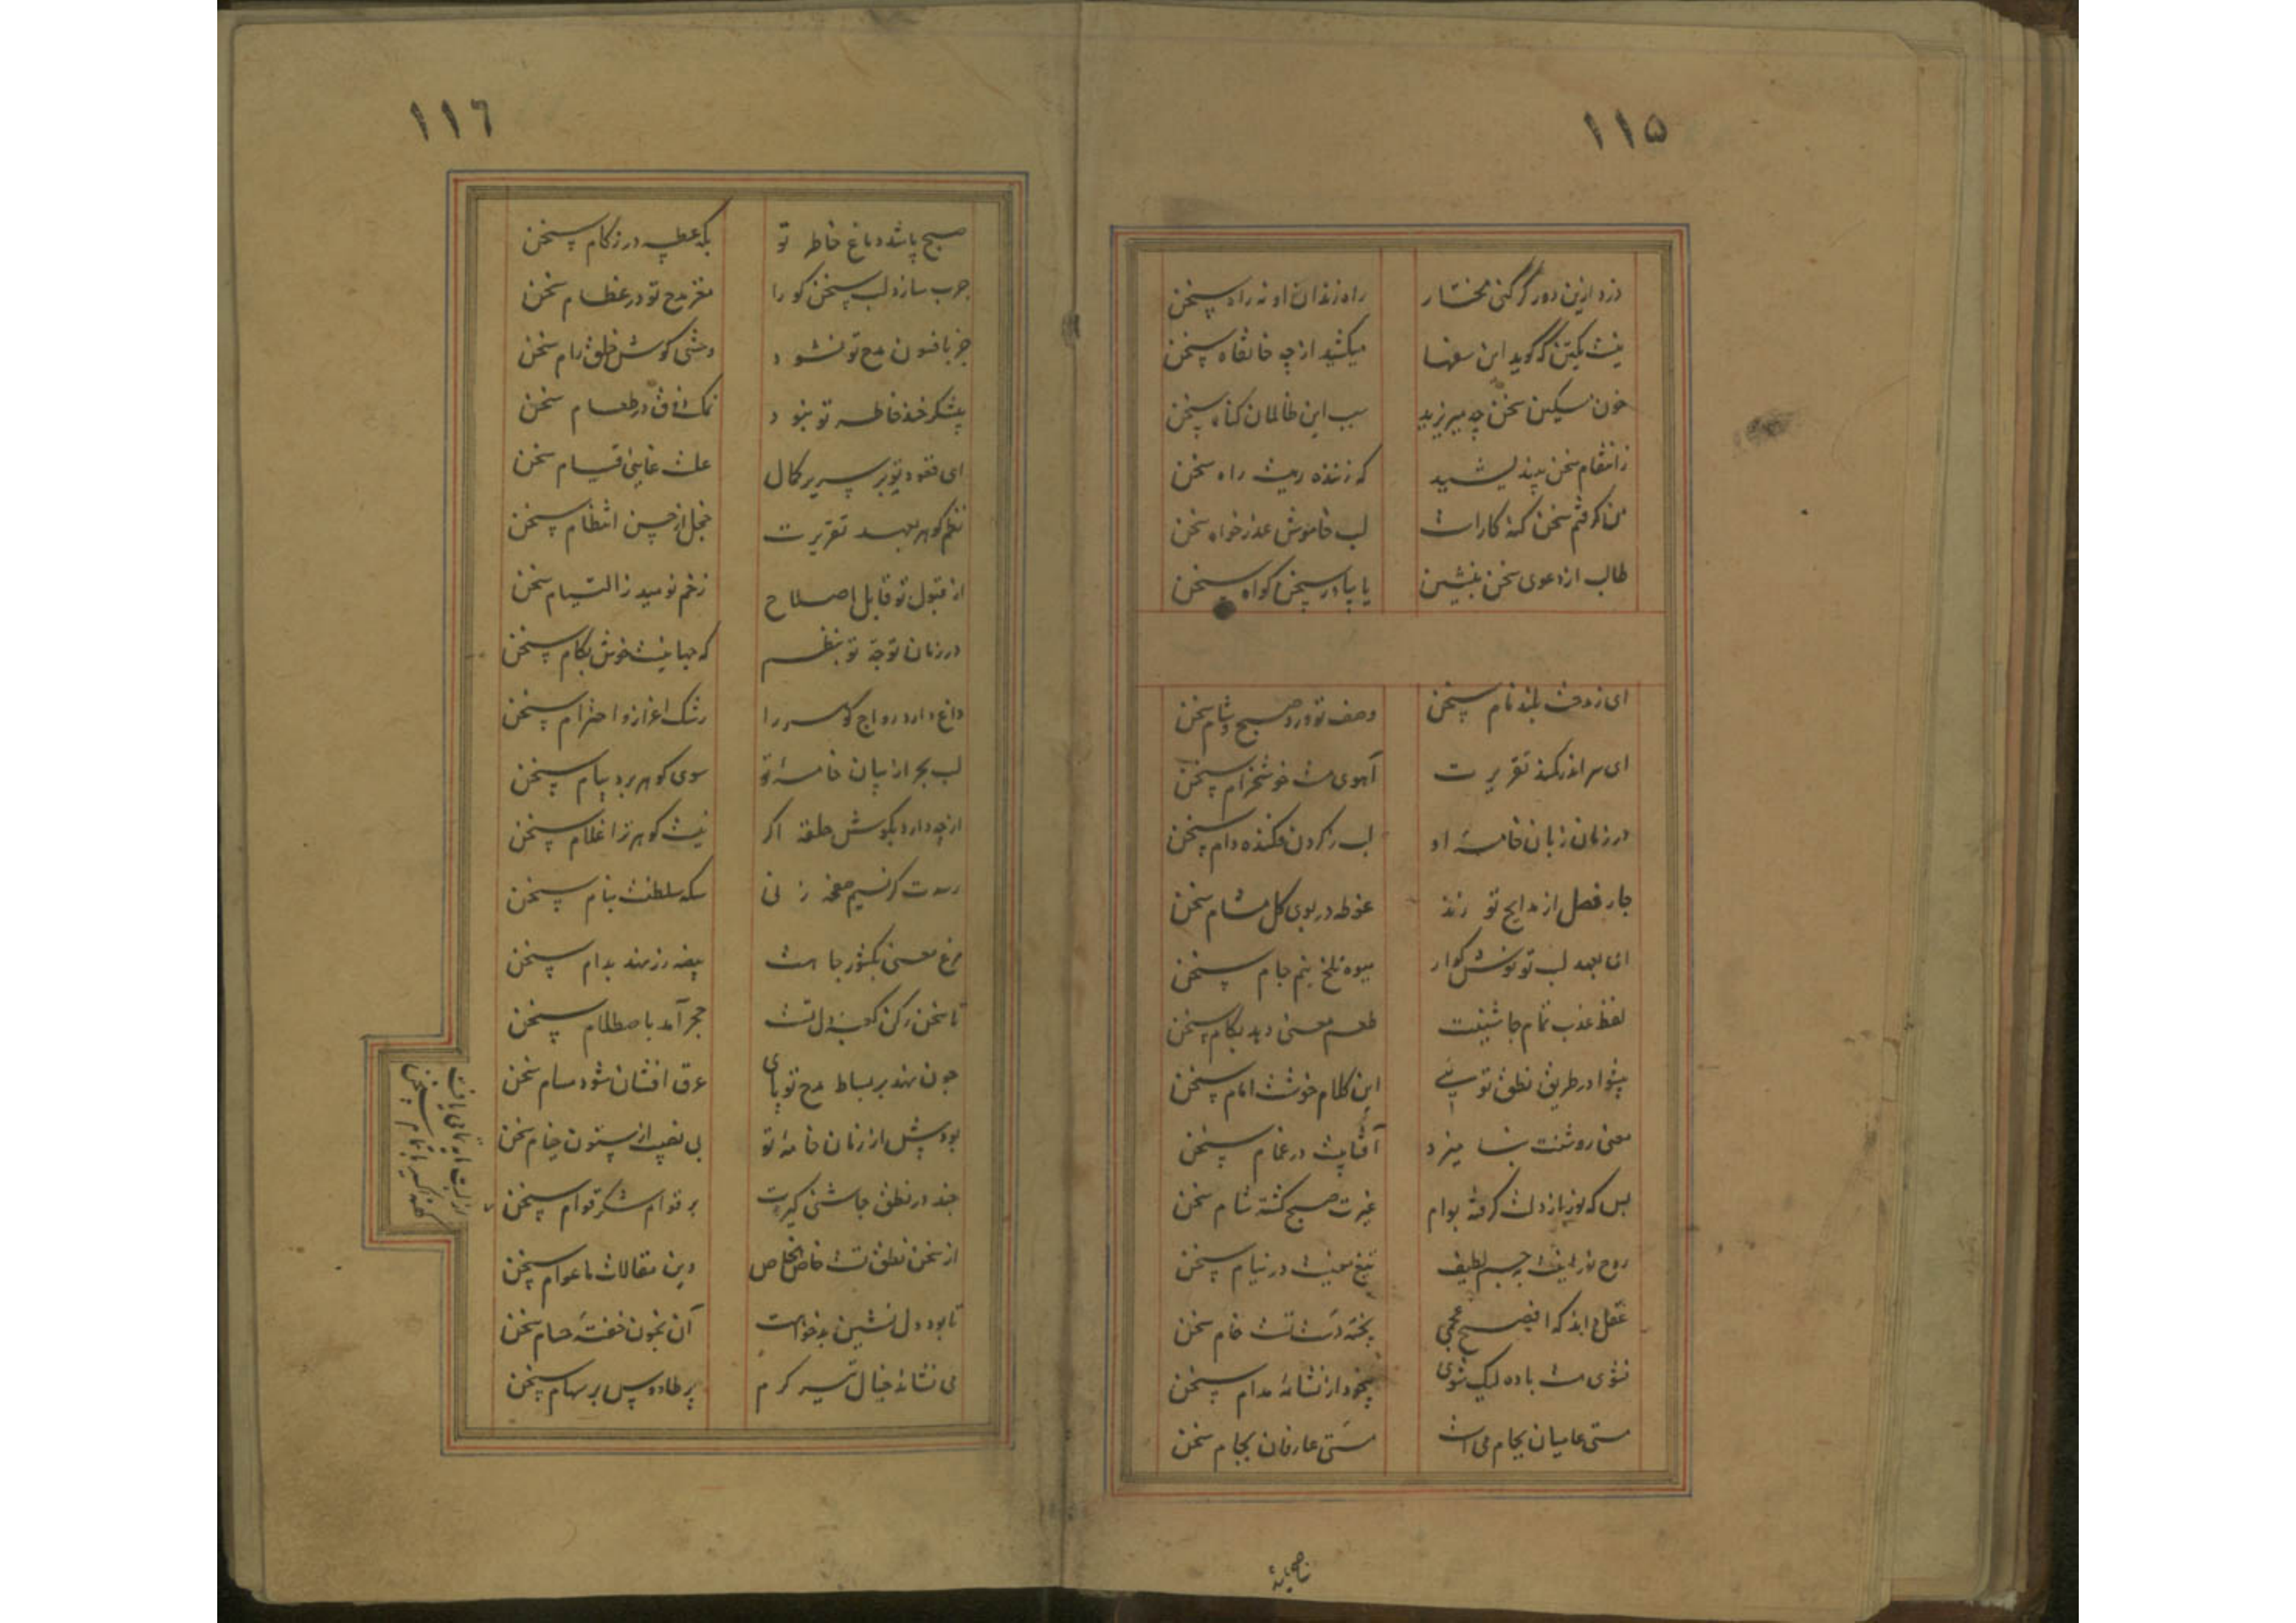 ۱۱۵
دزد ازین دور گر کنی مختار راه زندان او نه راه سخن
نیست یکتن که گوید این سفها میکشید از چه خانقاه سخن
خون مسکین سخن چه میریزید سبب این ظالمان گناه سخن
ز انتقام سخن بیندیشید که زننده راه سخن
من گرفتم سخن لب خاموش عذرخواه سخن
طالب از دعوی سخن بنشین یا بیاور سخن گواه سخن
ای ز وصفت بلند نام سخن وصف تو ورد صبح و شام سخن
ای سر اندر کمند تقریرت آهوی مست خوشخرام سخن
در زمان زبان خامه او لب ز گردن فکنده دام سخن
چار فصل از مدایح تو زند غوطه در بوی گل مشام سخن
بعهد لب تو نوش گوار میوه تلخ نیم جام سخن
لفظ عذب تمام چاشنیت طعم معنی دهد بکام سخن
پیشوا در طریق نطق تو نیی این کلام خوشت امام سخن
معنی روشنت آفتابیست در غمام سخن
بس که نور از دلت گرفته بوام غیرت صبح گشته شام سخن
روح لطیف تیغ معنیست در نیام سخن
عقل داند که افصح عجمی پخته تست خام سخن
نشوی مست باده لیک شوی بیخود از نشاهٔ مدام سخن
مستی عامیان بجام می است مستی عارفان بجام سخن
۱۱٦
صبح پاشد دماغ خاطر تو بکه عطسه در زکام سخن
چرب سازد لب سخن گو را مغز مدح تو در عظام سخن
جز بافسون مدح تو نشود وحشی گوش خلق رام سخن
بیشکر خند خاطر تو نبود نمک در طعام سخن
ای قعود تو بر سریر کمال علت غایی قیام سخن
نظم گوهر بعهد تقریرت خجل از حسن انتظام سخن
از قبول تو قابل اصلاح زخم نومید ز التیام سخن
در زمان توجه تو بنظم که جهانیست خوش بکام سخن
داغ دارد رواج گوهر را رشک اعزاز و احترام سخن
لب بحر از بیان خامهٔ تو سوی گوهر برد پیام سخن
از چه دارد بگوش حلقه اگر نیست گوهر ز غلام سخن
رسدت گر نسیم زنی سکه سلطنت بنام سخن
مرغ معنی بکشور جاهت بیضه زر نهد بدام سخن
تا سخن رکن کعبه دل تست حجر آمد باصطلام سخن
چون نهد بر بساط مدح تو پای عرق افشان شود مسام سخن
بود پیش از زمان خامه تو بی نصیب از ستون خیام سخن
چند در نطق چاشنی گیرت بر قوام شکر قوام سخن
از سخن نطق تست خاص الخاص وین مقالات ما عوام سخن
تا بود دل نشین بدخواهت آن بخون خفته حسام سخن
می نشاند خیال تیر کرم پر طاووس بر سهام سخن
سخن